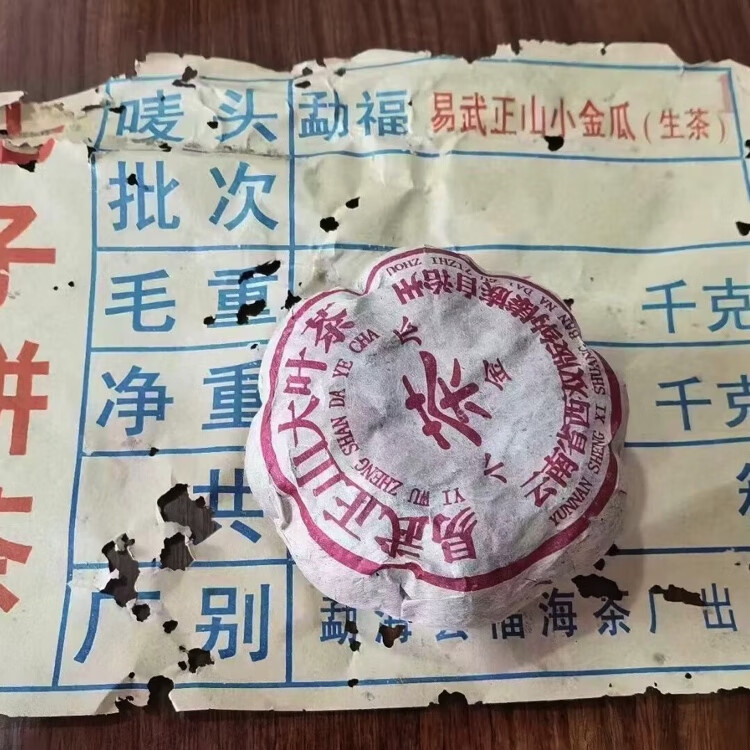 子饼茶
唛头 勐福 易武正山小金瓜(生茶)
批次
毛重 千克
净重 千克
共
厂别 勐海 福海茶厂出
易武正山大叶茶
YI WU ZHENG SHAN DA YE CHA
云南省西双版纳傣族自治州
YUNNAN SHENG XI SHUANG BAN NA DAI ZU ZIZHI ZHOU
茶
小金